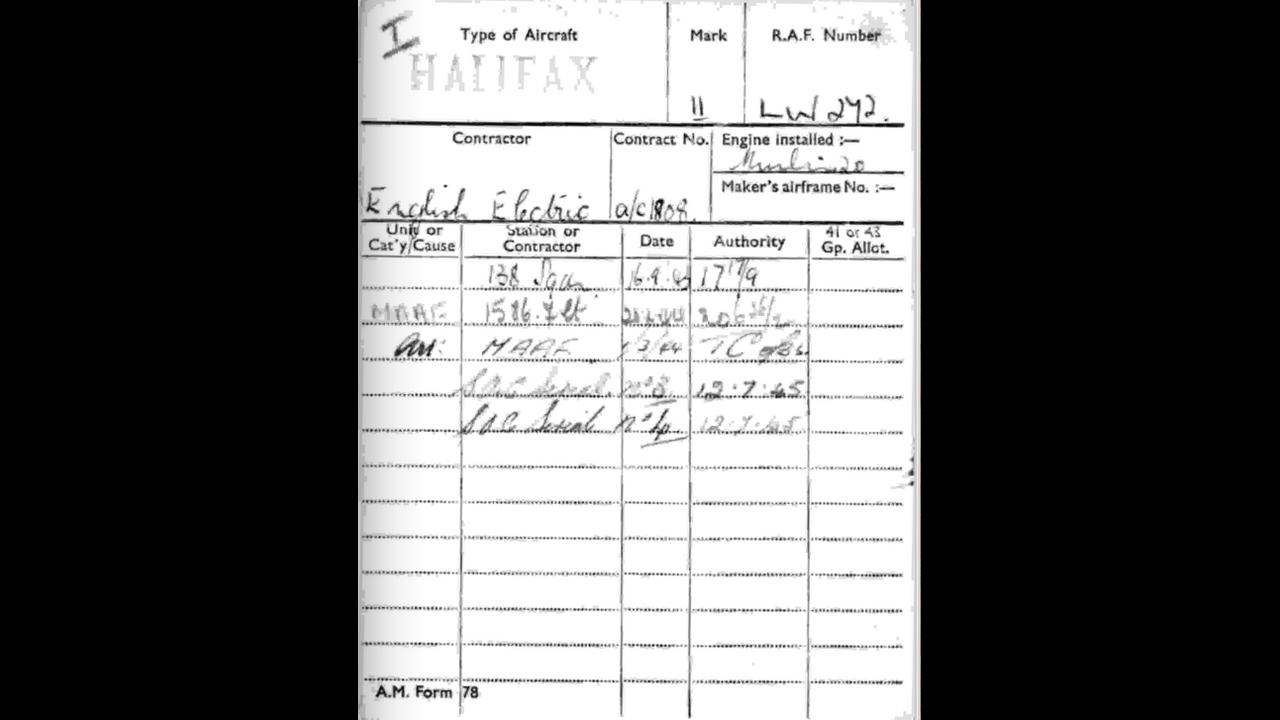 I Type of Aircraft Mark R.A.F. Number
HALIFAX
II LW 272.
Contractor Contract No. Engine installed :—
Merlin 20
Maker's airframe No. :—
English Electric a/c 808.
Unit or Cat'y/Cause Station or Contractor Date Authority 41 or 43 Gp. Allot.
138 Sqn 16.9.43 17 17/9
MAAF 1586.Flt
Arr: MAAF 1/3/44 TC
SOC Serial. no 3. 12.7.45
SOC Serial no 4. 12.7.45
A.M. Form 78